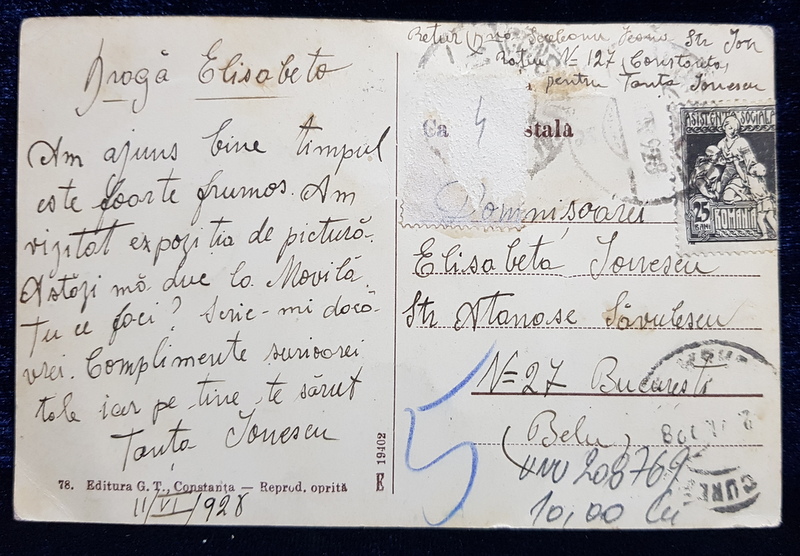 Dragă Elisabeto
Am ajuns bine timpul
este foarte frumos. Am
vizitat expoziția de pictură.
Astăzi mă duc la Movilă.
Tu ce faci? Scrie-mi dacă
vrei. Complimente surioarei
tale iar pe tine te sărut
Tanța Ionescu
78. Editura G. T., Constanța — Reprod. oprită
E 19402
11/VI/1928
Retur
Str Ion
Rațiu N= 127 (Constanța)
pentru Tanța Ionescu
Ca 4 stala
Domnișoarei
Elisabeta Ionescu
Str Atanase Săvulescu
N=27 București
(Belu)
5
208769
10,00 lei
ASISTENȚA SOCIALĂ
25
BANI
ROMANIA